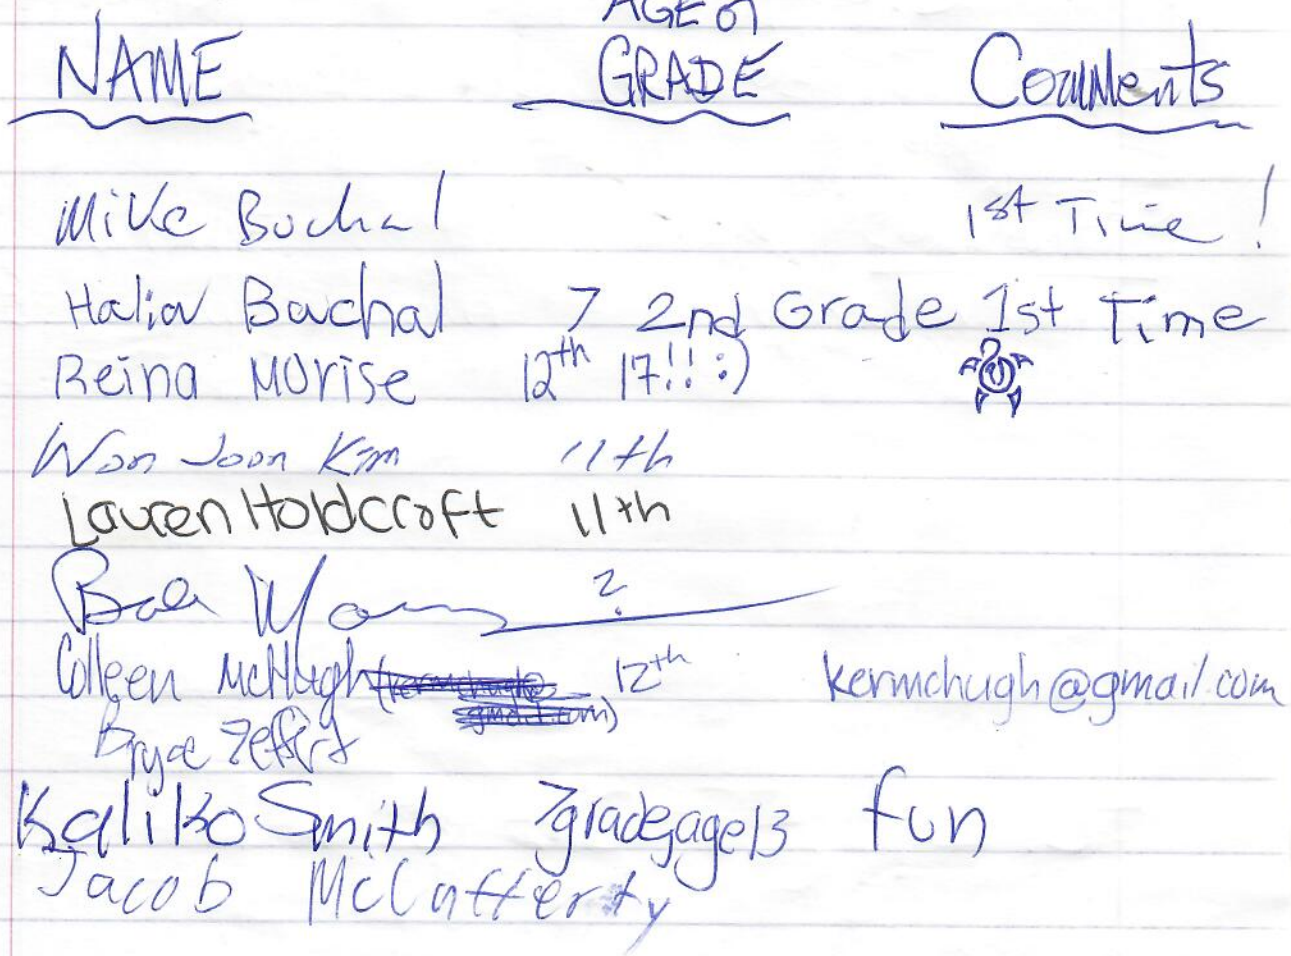 AGE or
NAME GRADE Comments
Mike Buchal 1st Time!
Halia Buchal 7 2nd Grade 1st Time
Reina Morise 12th 17!! :)
Won Joon Kim 11th
Lauren Holdcroft 11th
?
Colleen McHugh 12th kermchugh@gmail.com
Bryce
Kaliko Smith 7grade,age13 fun
Jacob McCafferty